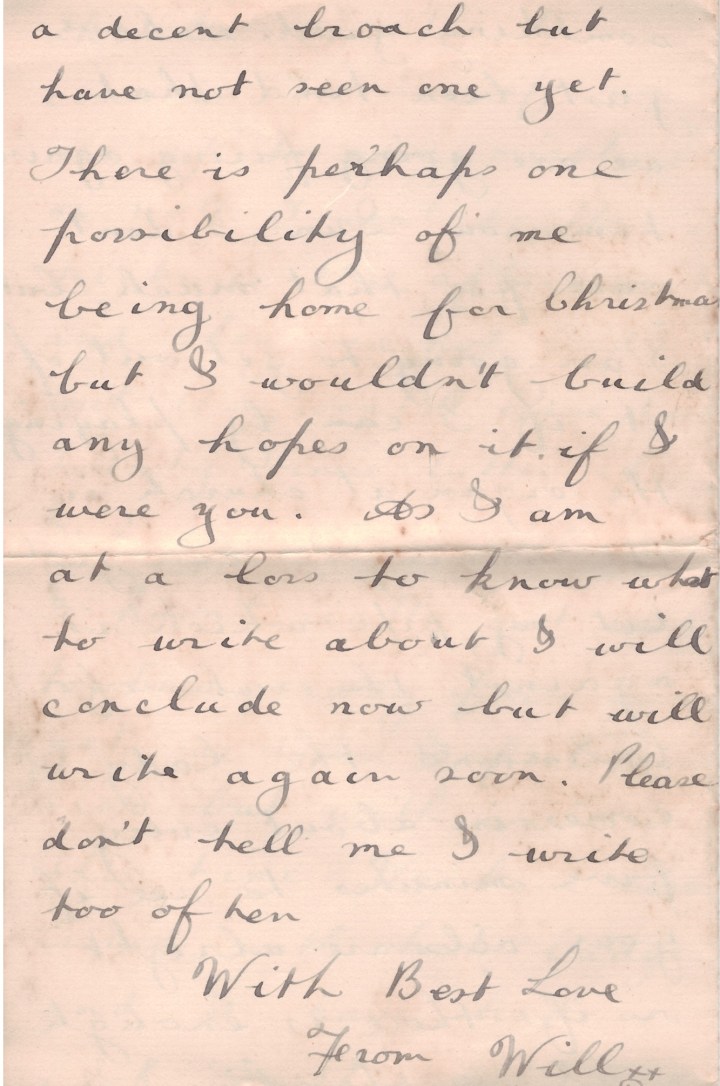 a decent broach but
have not seen one yet.
There is perhaps one
possibility of me
being home for Christma
but I wouldn't build
any hopes on it. if I
were you. As I am
at a loss to know what
to write about I will
conclude now but will
write again soon. Please
don't tell me I write
too often
With Best Love
From Will xx